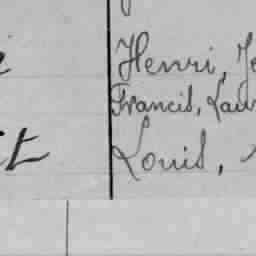 Henri, Je
Francis, Lau
Louis,